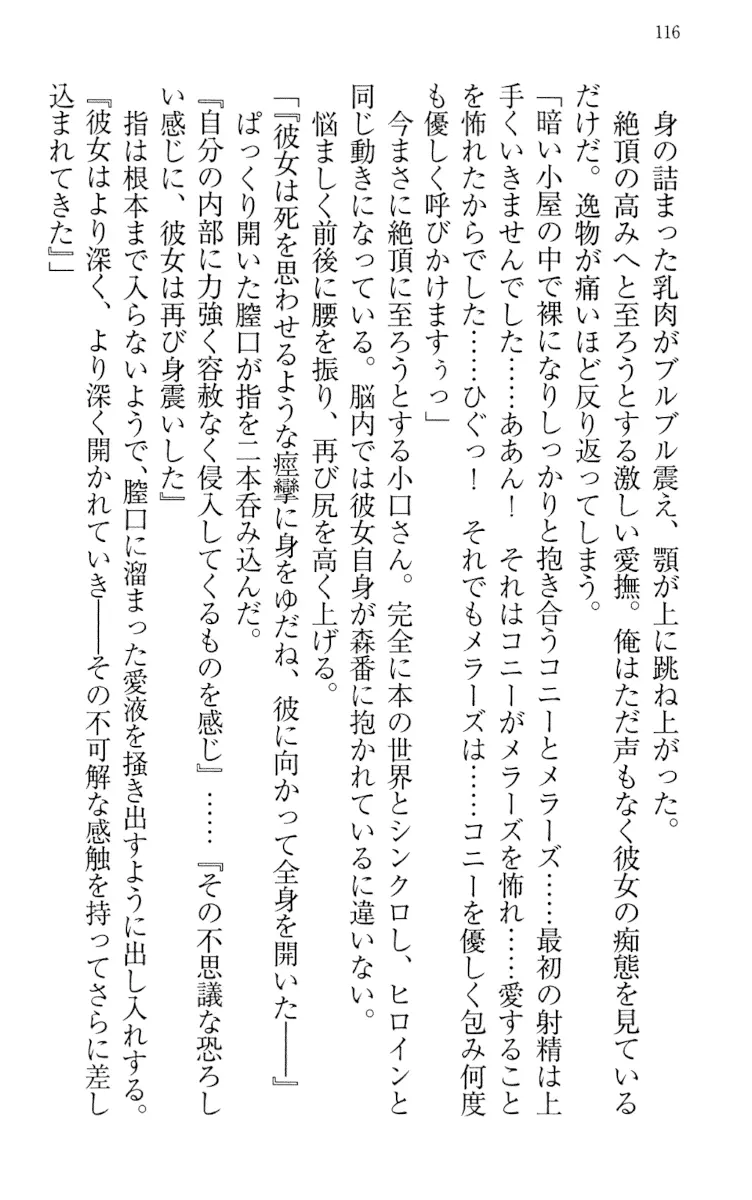 116
身の詰まった乳肉がブルブル震え、顎が上に跳ね上がった。
絶頂の高みへと至ろうとする激しい愛撫。俺はただ声もなく彼女の痴態を見ている
だけだ。逸物が痛いほど反り返ってしまう。
「暗い小屋の中で裸になりしっかりと抱き合うコニーとメラーズ……最初の射精は上
手くいきませんでした……ああん！　それはコニーがメラーズを怖れ……愛すること
を怖れたからでした……ひぐっ！　それでもメラーズは……コニーを優しく包み何度
も優しく呼びかけますぅっ」
今まさに絶頂に至ろうとする小口さん。完全に本の世界とシンクロし、ヒロインと
同じ動きになっている。脳内では彼女自身が森番に抱かれているに違いない。
悩ましく前後に腰を振り、再び尻を高く上げる。
「『彼女は死を思わせるような痙攣に身をゆだね、彼に向かって全身を開いた――』
ぱっくり開いた膣口が指を二本呑み込んだ。
『自分の内部に力強く容赦なく侵入してくるものを感じ』……『その不思議な恐ろし
い感じに、彼女は再び身震いした』
指は根本まで入らないようで、膣口に溜まった愛液を掻き出すように出し入れする。
『彼女はより深く、より深く開かれていき――その不可解な感触を持ってさらに差し
込まれてきた』」